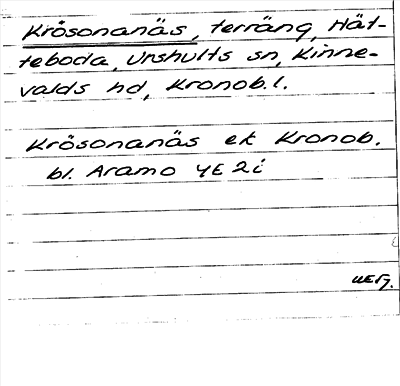 Krösonanäs, terräng, Hät-
teboda, Urshults sn, Kinne-
valds hd, Kronob.l.
Krösonanäs ek Kronob.
bl. Aramo 4E 2i